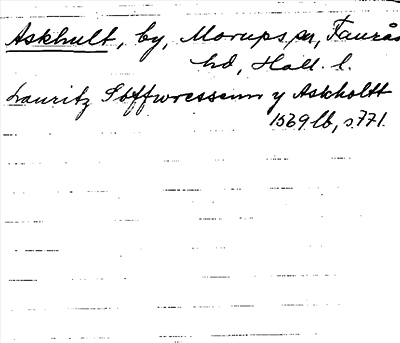 Askhult, by, Morups sn, Faurås
hd, Hall. l.
Lauritz Soffwressenn y Askholtt
1569 lb, s. 771.